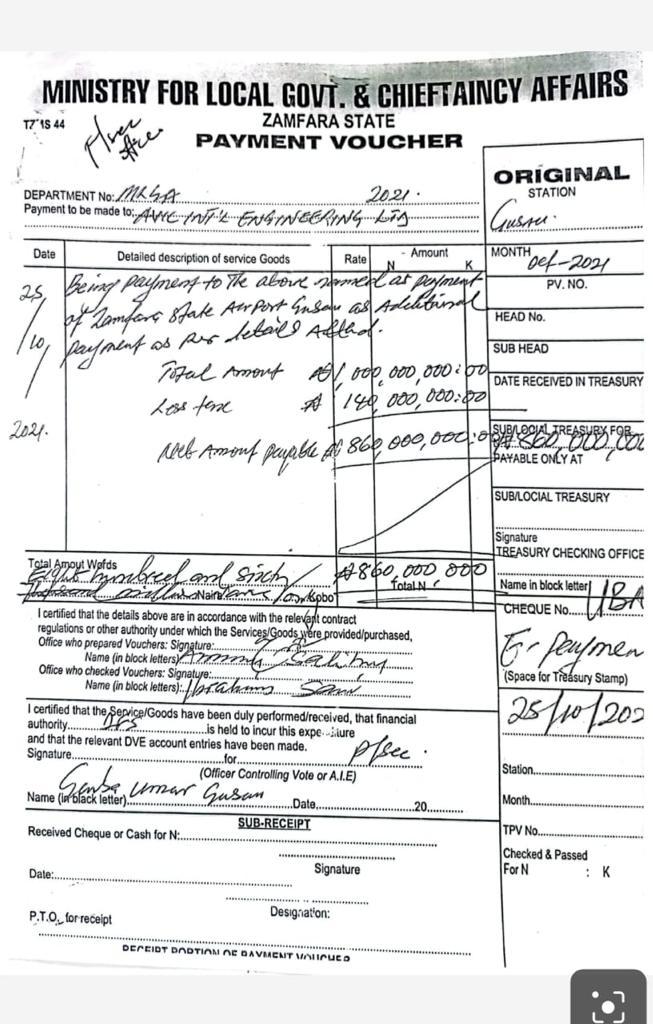 MINISTRY FOR LOCAL GOVT. & CHIEFTAINCY AFFAIRS
ZAMFARA STATE
PAYMENT VOUCHER
P/sec
ORIGINAL
STATION
Gusau
DEPARTMENT No: MLGA 2021.
Payment to be made to: AWC INT'L ENGINEERING LTD
Date Detailed description of service Goods Rate Amount
N K
MONTH Oct-2021
PV. NO.
HEAD No.
SUB HEAD
DATE RECEIVED IN TREASURY
25/10/2021.
Being payment to the above named as payment
of Zamfara State Airport Gusau as Additional
payment as per details Attchd.
Total Amount ₦1,000,000,000:00
Less ₦ 140,000,000:00
Nett Amount payable ₦860,000,000:00
SUB/LOCAL TREASURY FOR
₦860,000,000
PAYABLE ONLY AT
SUB/LOCAL TREASURY
Signature
TREASURY CHECKING OFFICE
Name in block letter
UBA
CHEQUE No.
E-Paymen
(Space for Treasury Stamp)
25/10/202
Station
Month
TPV No.
Checked & Passed
For N : K
Total Amout Words Eight hundred and sixty
Naira Kobo
₦860,000 000
Total N
I certified that the details above are in accordance with the relevant contract
regulations or other authority under which the Services/Goods were provided/purchased,
Office who prepared Vouchers: Signature:
Name (in block letters)
Office who checked Vouchers: Signature:
Name (in block letters): Ibrahim Sani
I certified that the Service/Goods have been duly performed/received, that financial
authority is held to incur this expe iture
and that the relevant DVE account entries have been made.
Signature for P/sec.
(Officer Controlling Vote or A.I.E)
Name (in black letter) Garba Umar Gusau Date 20
SUB-RECEIPT
Received Cheque or Cash for N:
Signature
Date:
Designation:
P.T.O, for receipt
RECEIPT PORTION OF PAYMENT VOUCHER